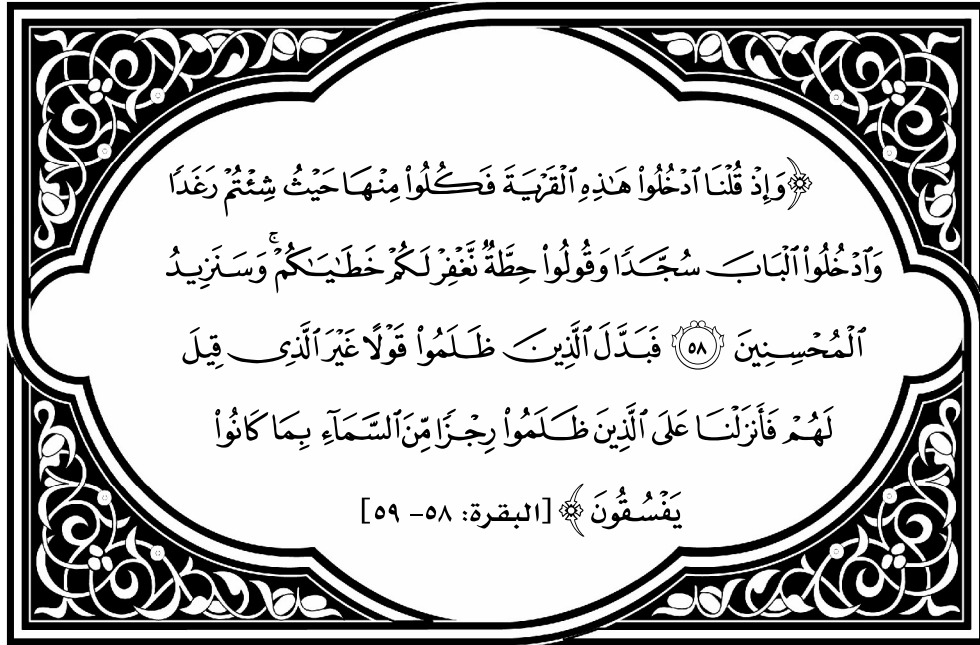 ﴿وَإِذۡ قُلۡنَا ٱدۡخُلُواْ هَٰذِهِ ٱلۡقَرۡيَةَ فَكُلُواْ مِنۡهَا حَيۡثُ شِئۡتُمۡ رَغَدٗا
وَٱدۡخُلُواْ ٱلۡبَابَ سُجَّدٗا وَقُولُواْ حِطَّةٞ نَّغۡفِرۡ لَكُمۡ خَطَٰيَٰكُمۡۚ وَسَنَزِيدُ
ٱلۡمُحۡسِنِينَ ٥٨ فَبَدَّلَ ٱلَّذِينَ ظَلَمُواْ قَوۡلًا غَيۡرَ ٱلَّذِي قِيلَ
لَهُمۡ فَأَنزَلۡنَا عَلَى ٱلَّذِينَ ظَلَمُواْ رِجۡزٗا مِّنَ ٱلسَّمَآءِ بِمَا كَانُواْ
يَفۡسُقُونَ﴾ [البقرة: ٥٨- ٥٩]